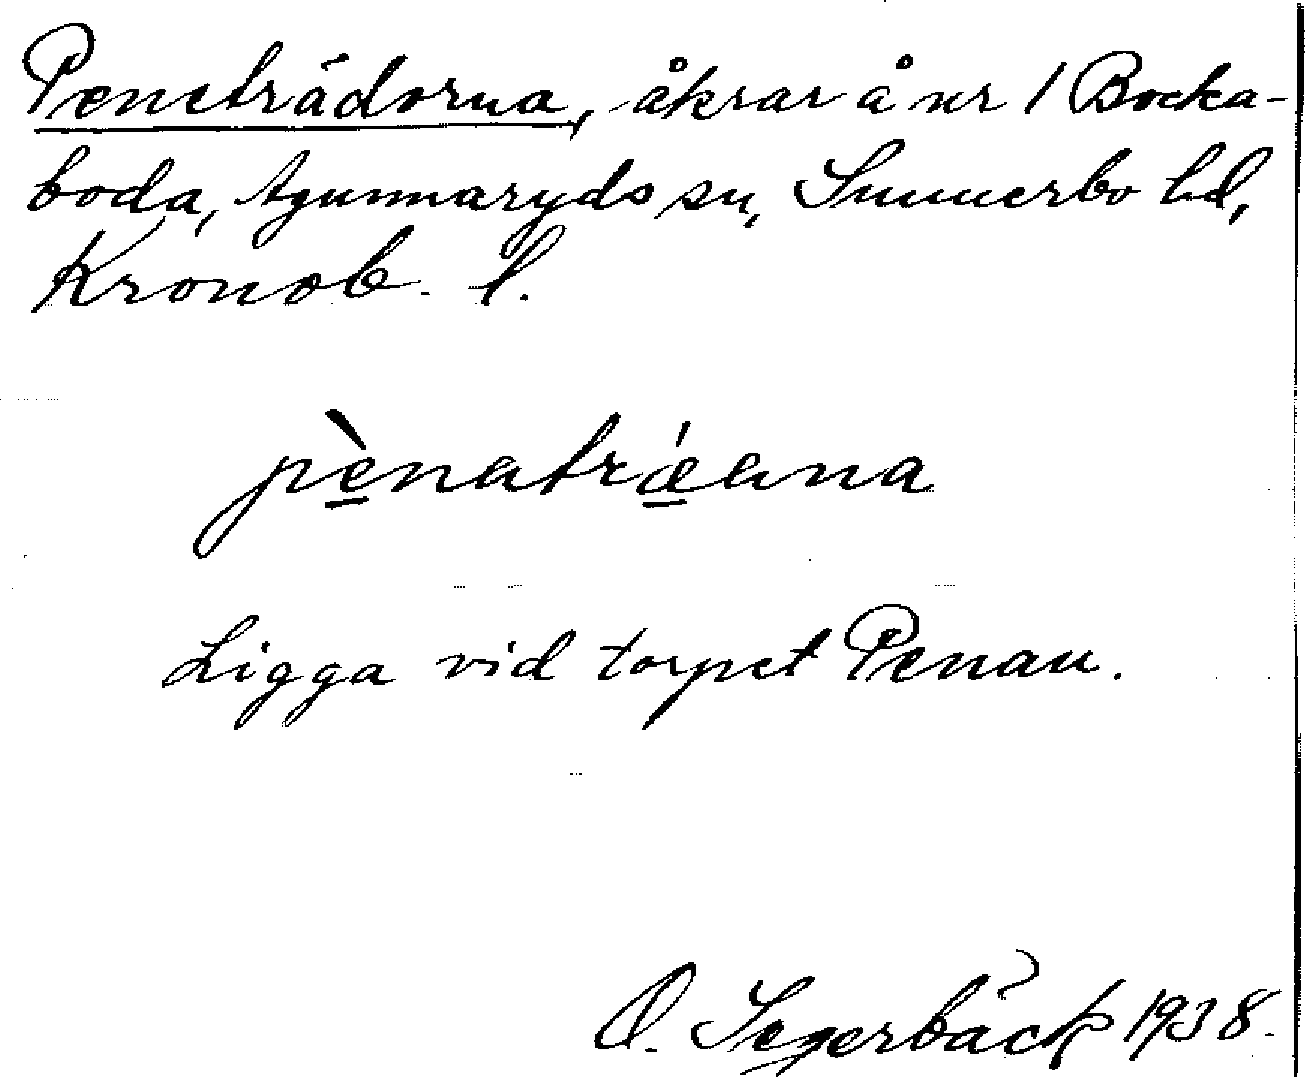 Peneträdorna, åkrar å nr 1 Bocka-
boda, Agunnaryds sn, Sunnerbo hd,
Kronob. l.
pènatrǽana
Ligga vid torpet Penan.
O. Segerbäck 1938.